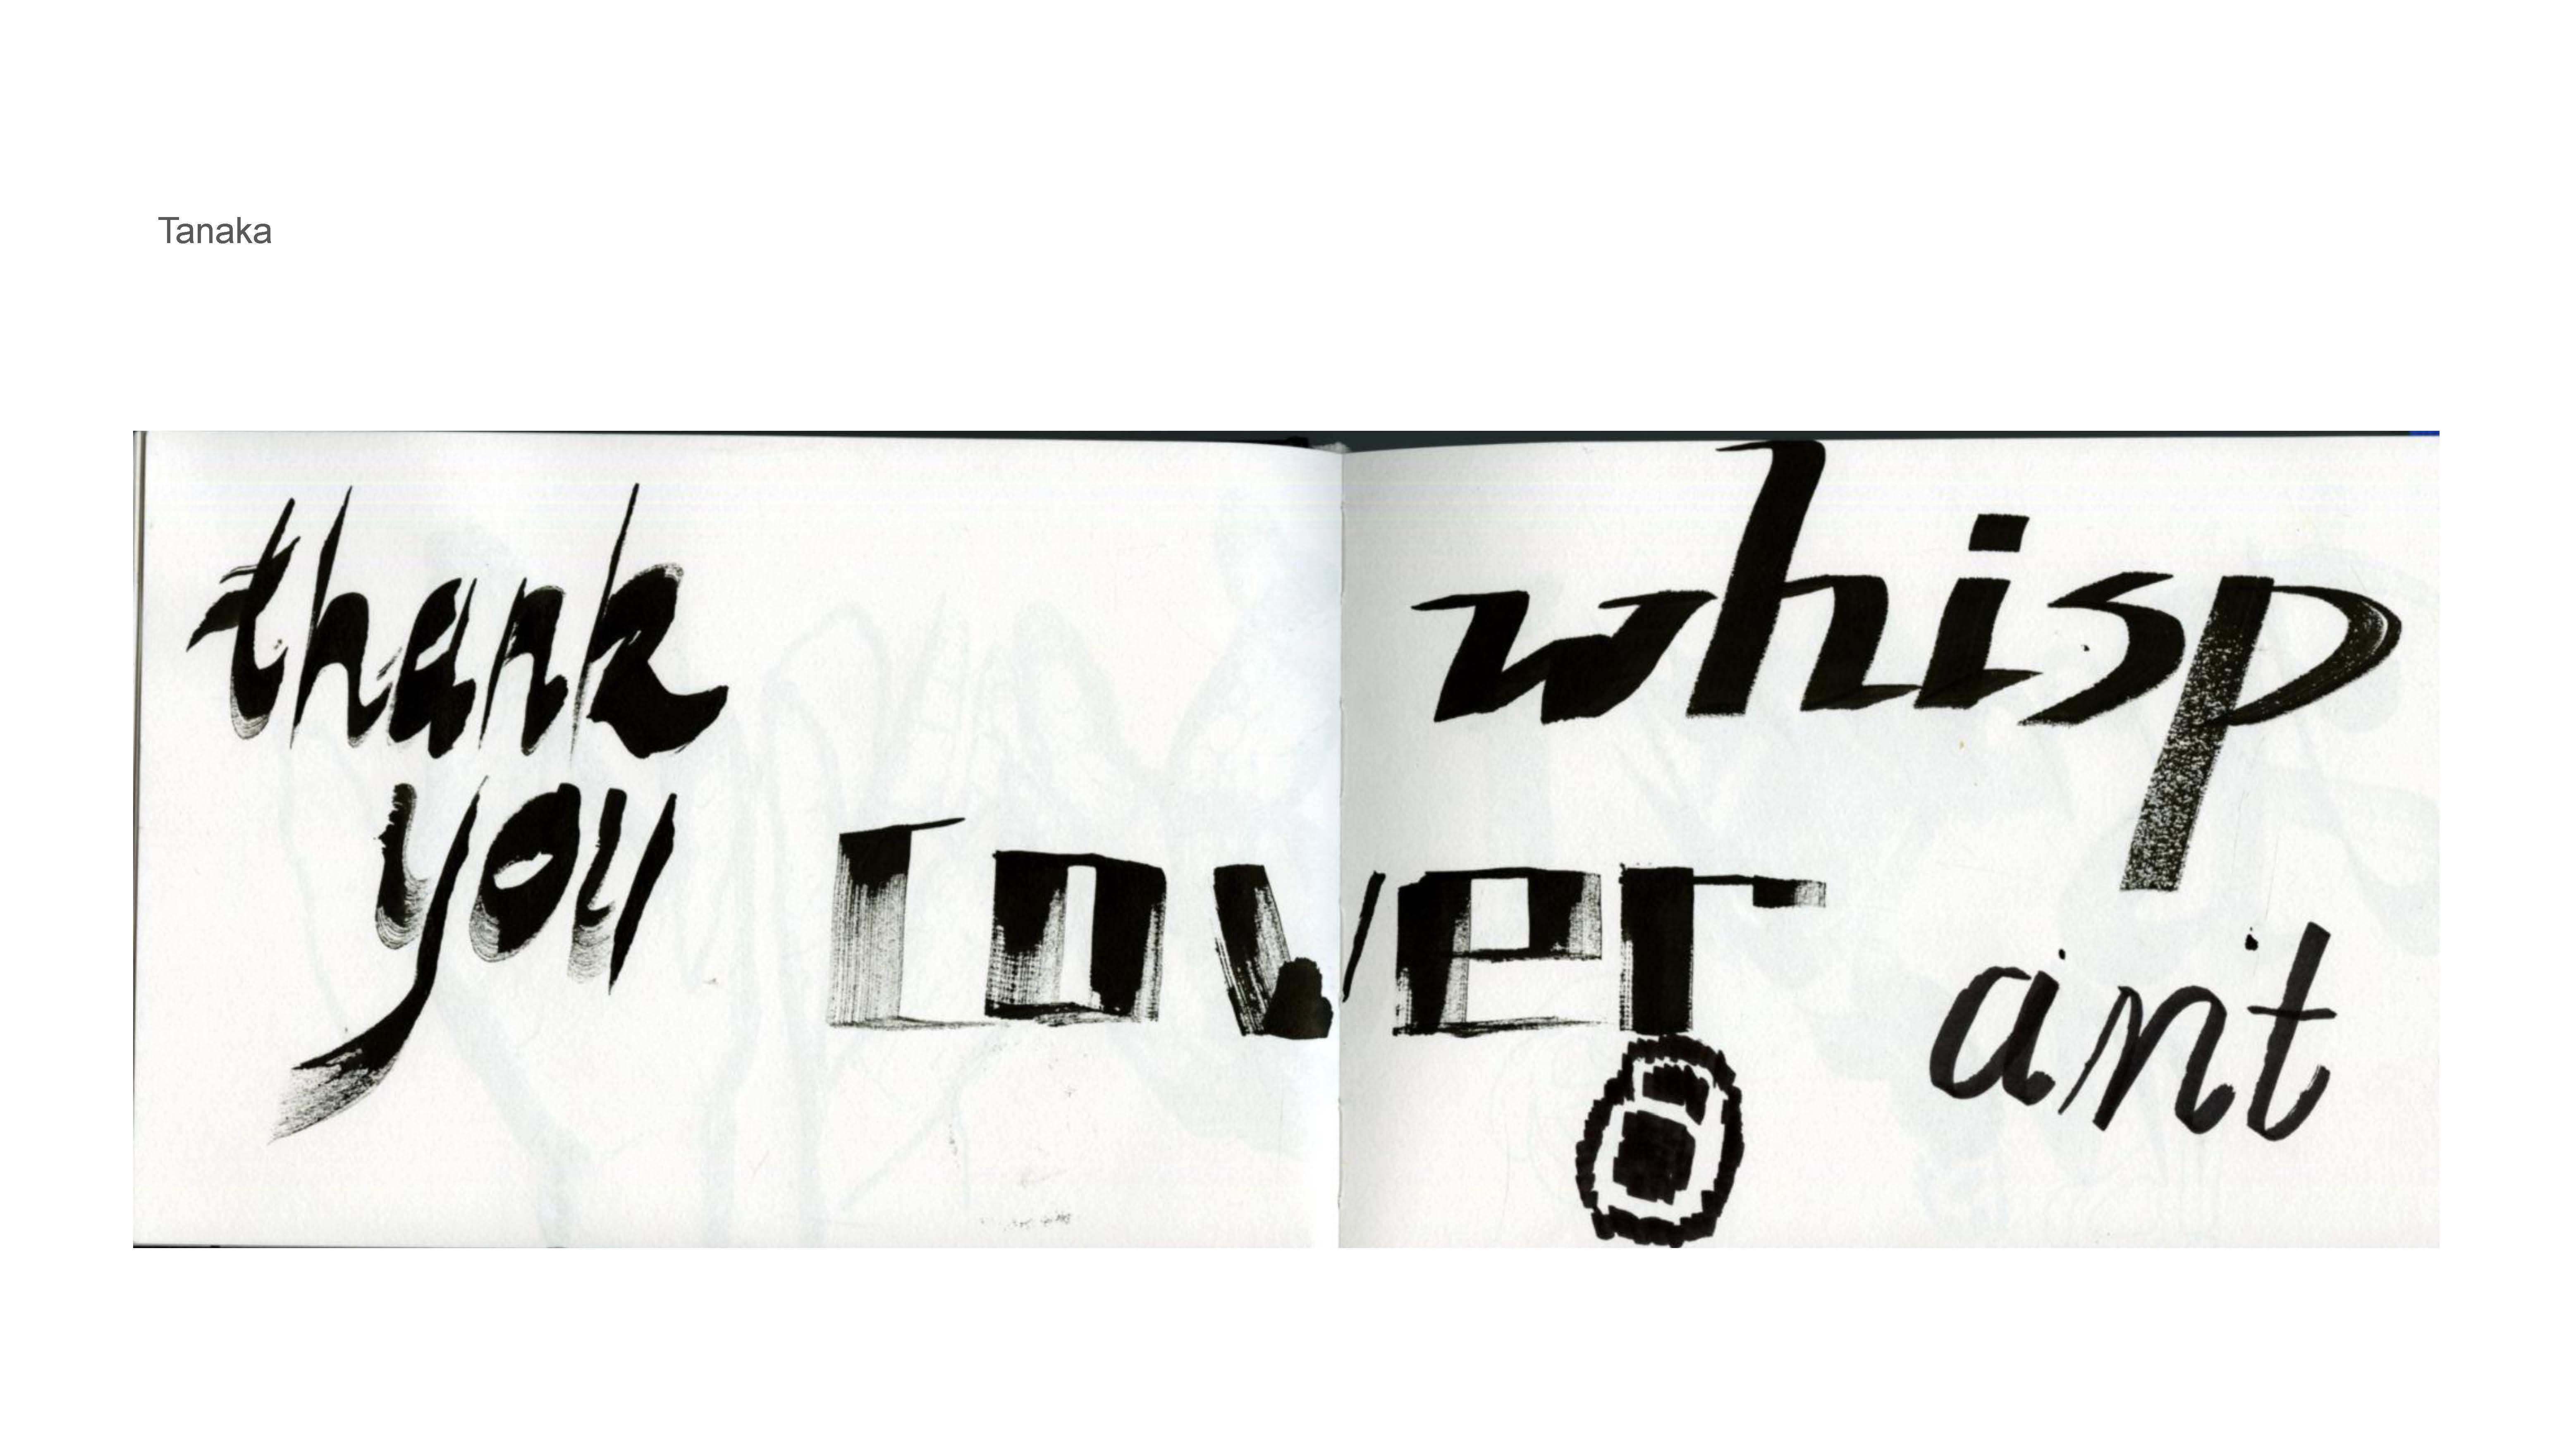 Tanaka
thank
you
cover
whisp
ant